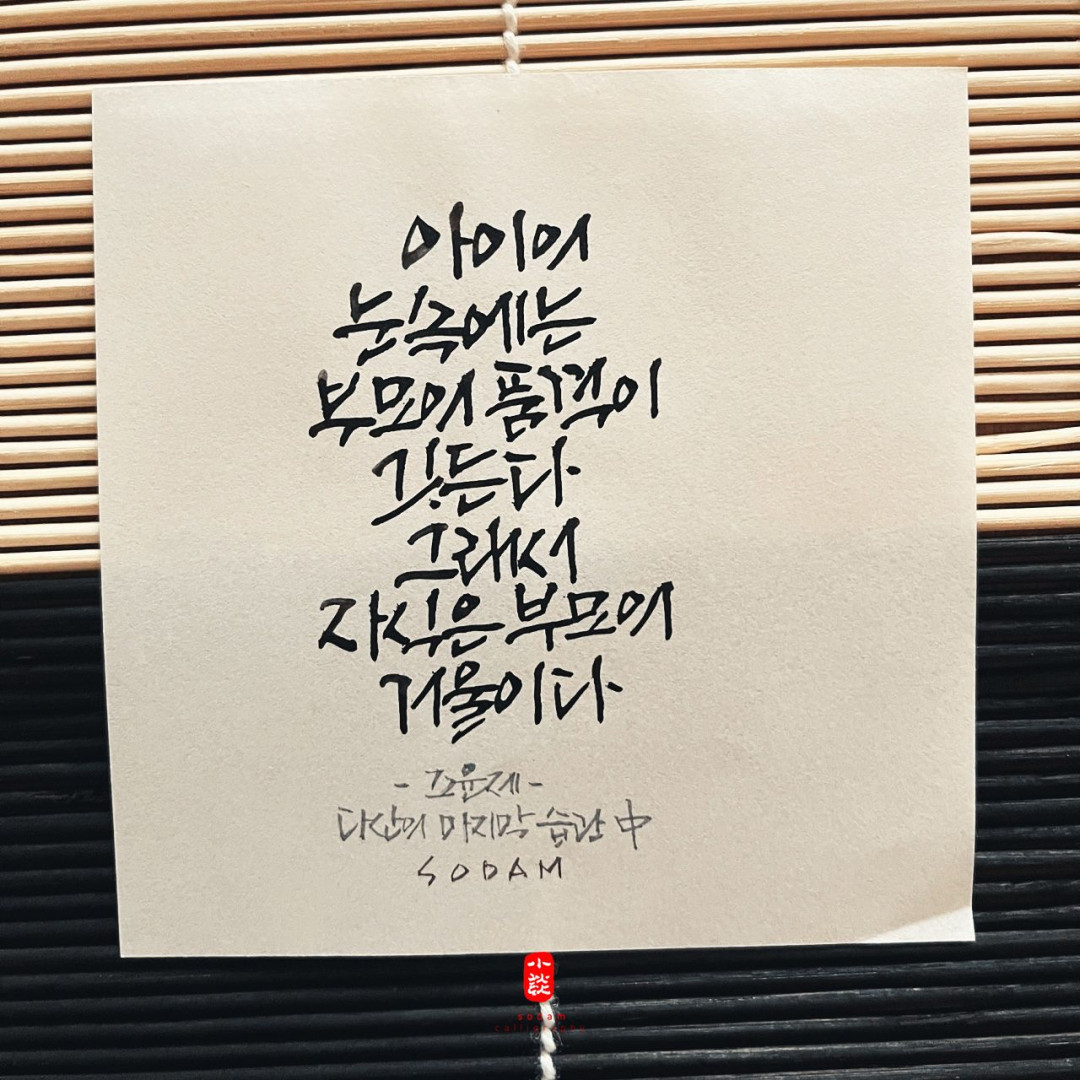 아이의
눈속에는
부모의 품격이
깃든다
그래서
자식은 부모의
거울이다
- 조윤제 -
다산의 마지막 습관 中
SODAM
小談
sodam
calligraphy